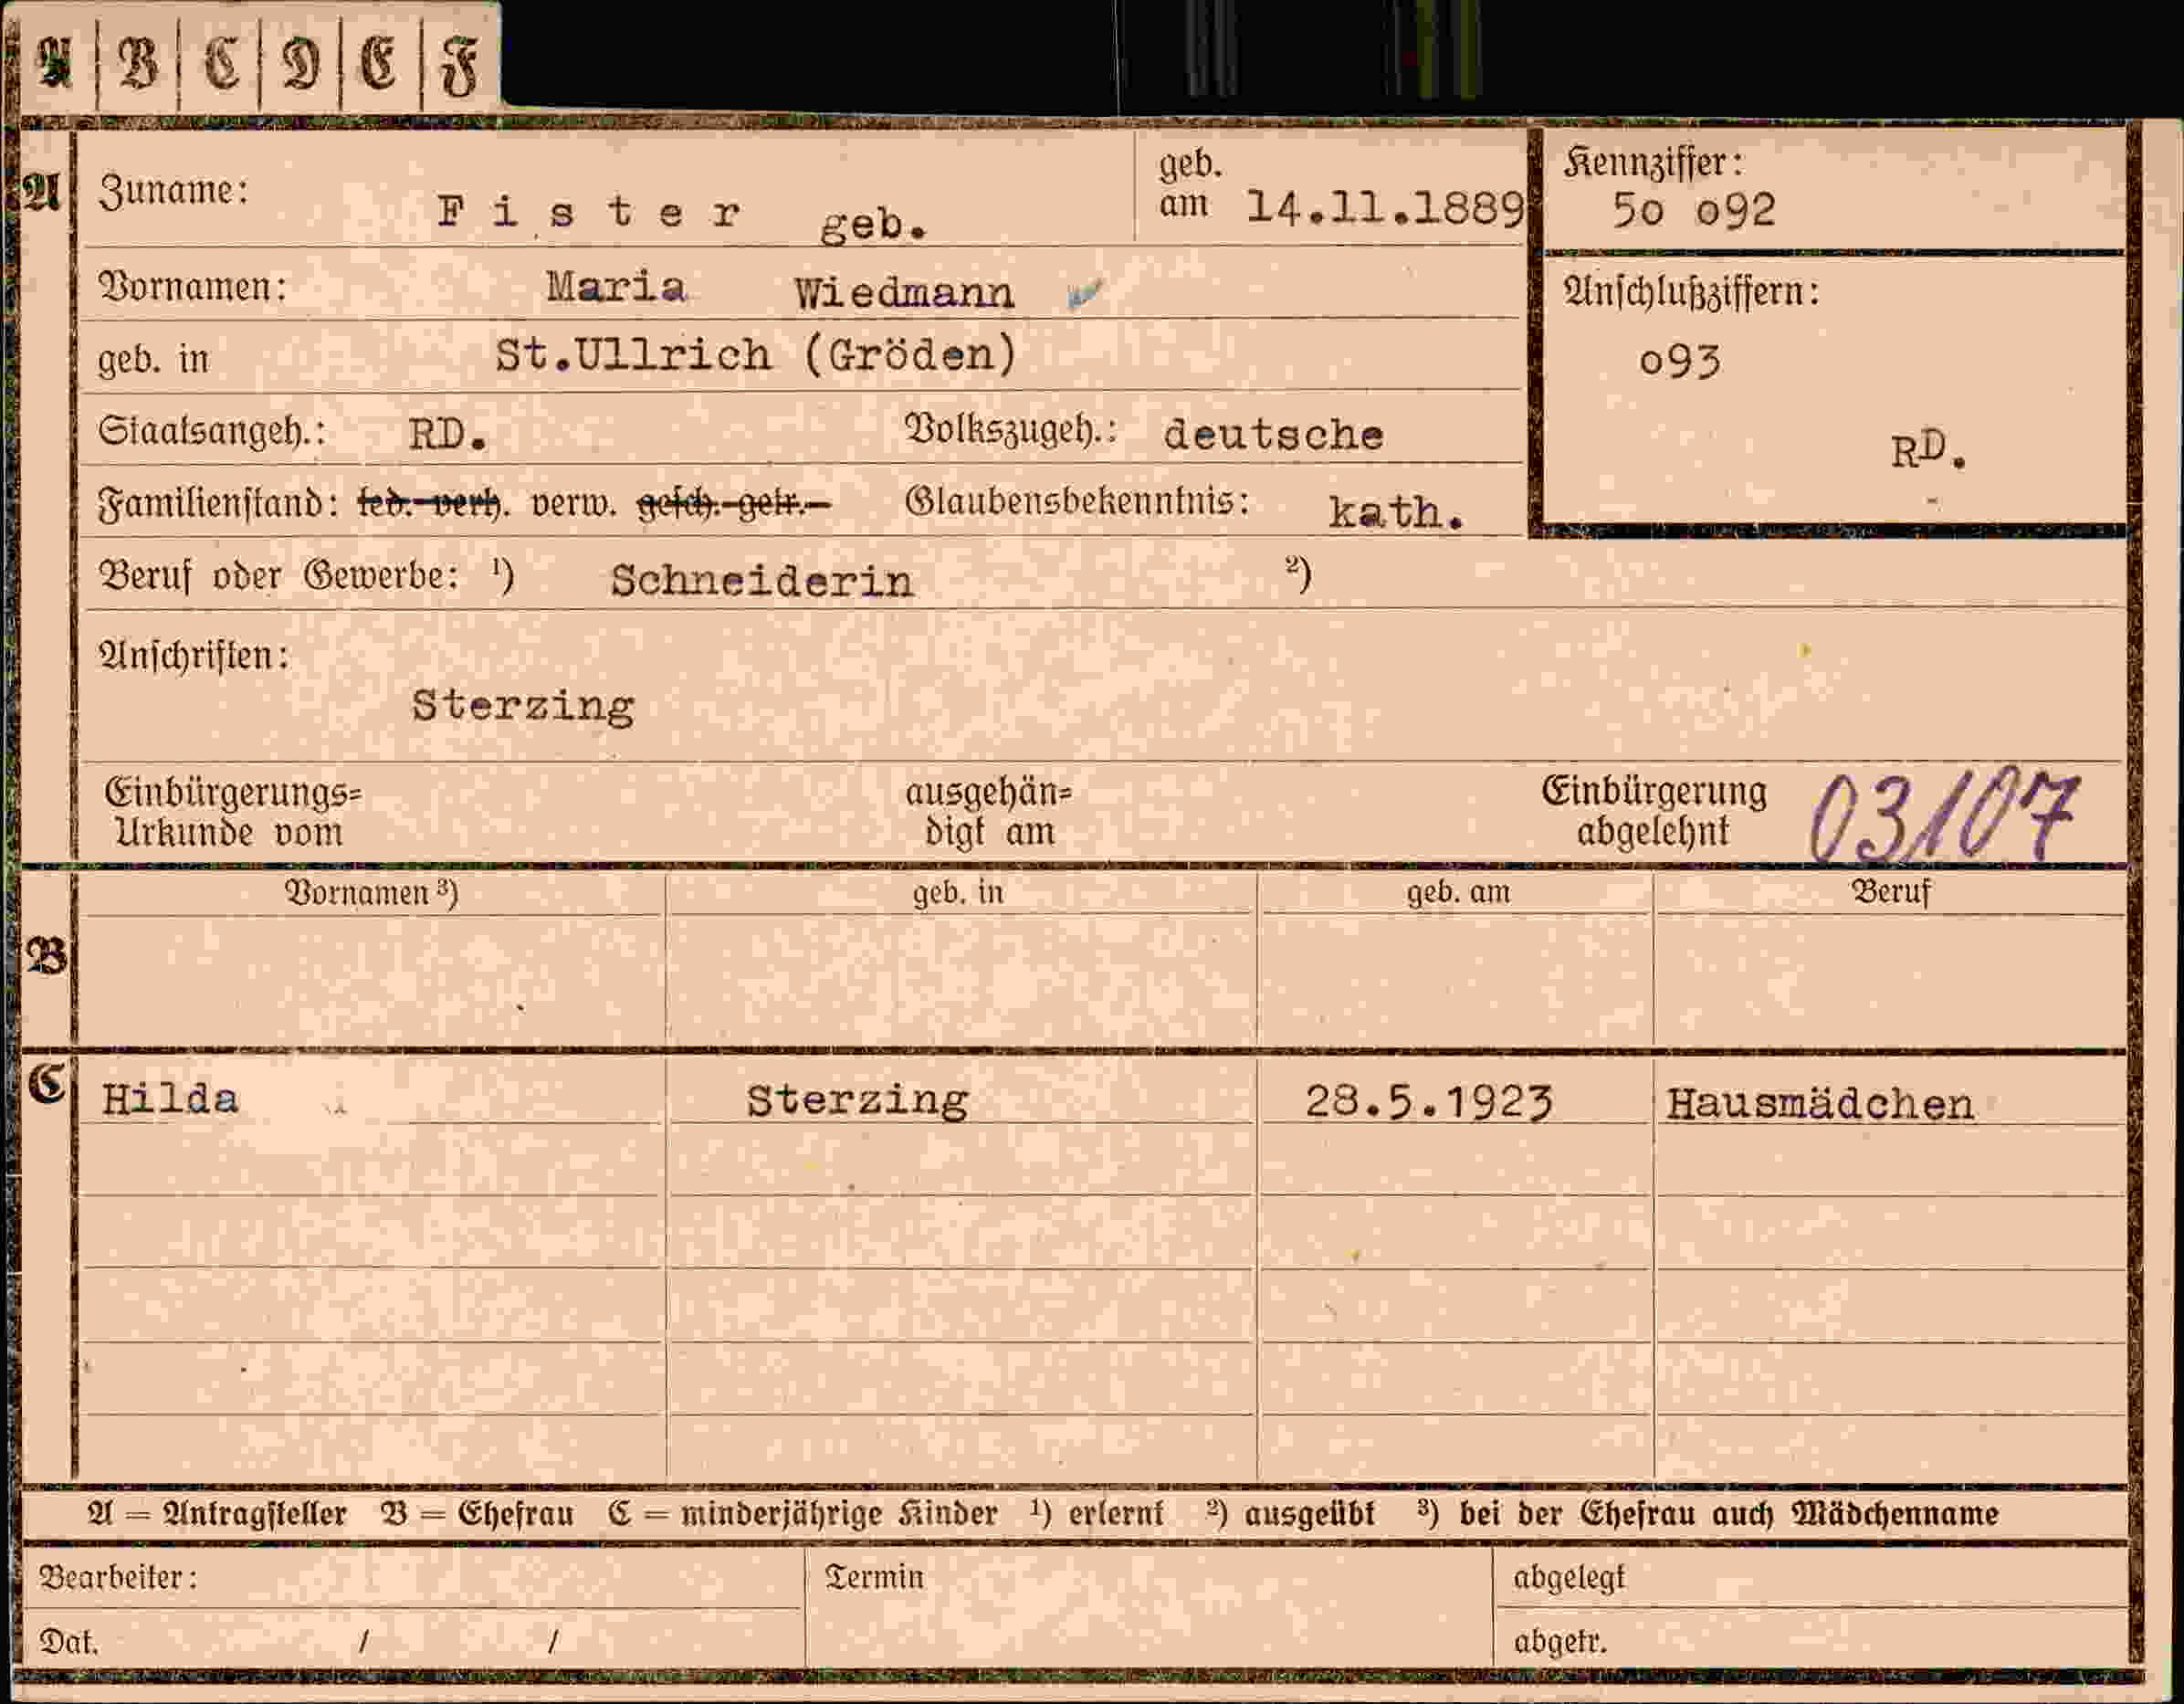 A B C D E F
A Zuname: Fister geb. geb. am 14.11.1889
Kennziffer: 5o o92
Vornamen: Maria Wiedmann
Anschlußziffern:
o93
RD.
geb. in St.Ullrich (Gröden)
Staatsangeh.: RD. Volkszugeh.: deutsche
Familienstand: led. verh. verw. gesch. getr. Glaubensbekenntnis: kath.
Beruf oder Gewerbe: ¹) Schneiderin ²)
Anschriften:
Sterzing
Einbürgerungs= ausgehän= Einbürgerung 03107
Urkunde vom digt am abgelehnt
Vornamen ³) geb. in geb. am Beruf
B
C Hilda Sterzing 28.5.1923 Hausmädchen
A = Antragsteller B = Ehefrau C = minderjährige Kinder ¹) erlernt ²) ausgeübt ³) bei der Ehefrau auch Mädchenname
Bearbeiter: Termin abgelegt
Dat. / / abgetr.